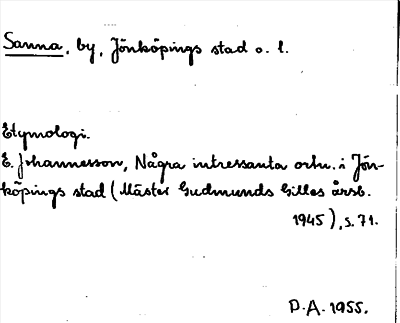 Sanna, by, Jönköpings stad o. l.
Etymologi.
E. Johannesson, Några intressanta ortn. i Jön-
köpings stad (Mäster Gudmunds Gilles årsb.
1945), s. 71.
P.A. 1955.